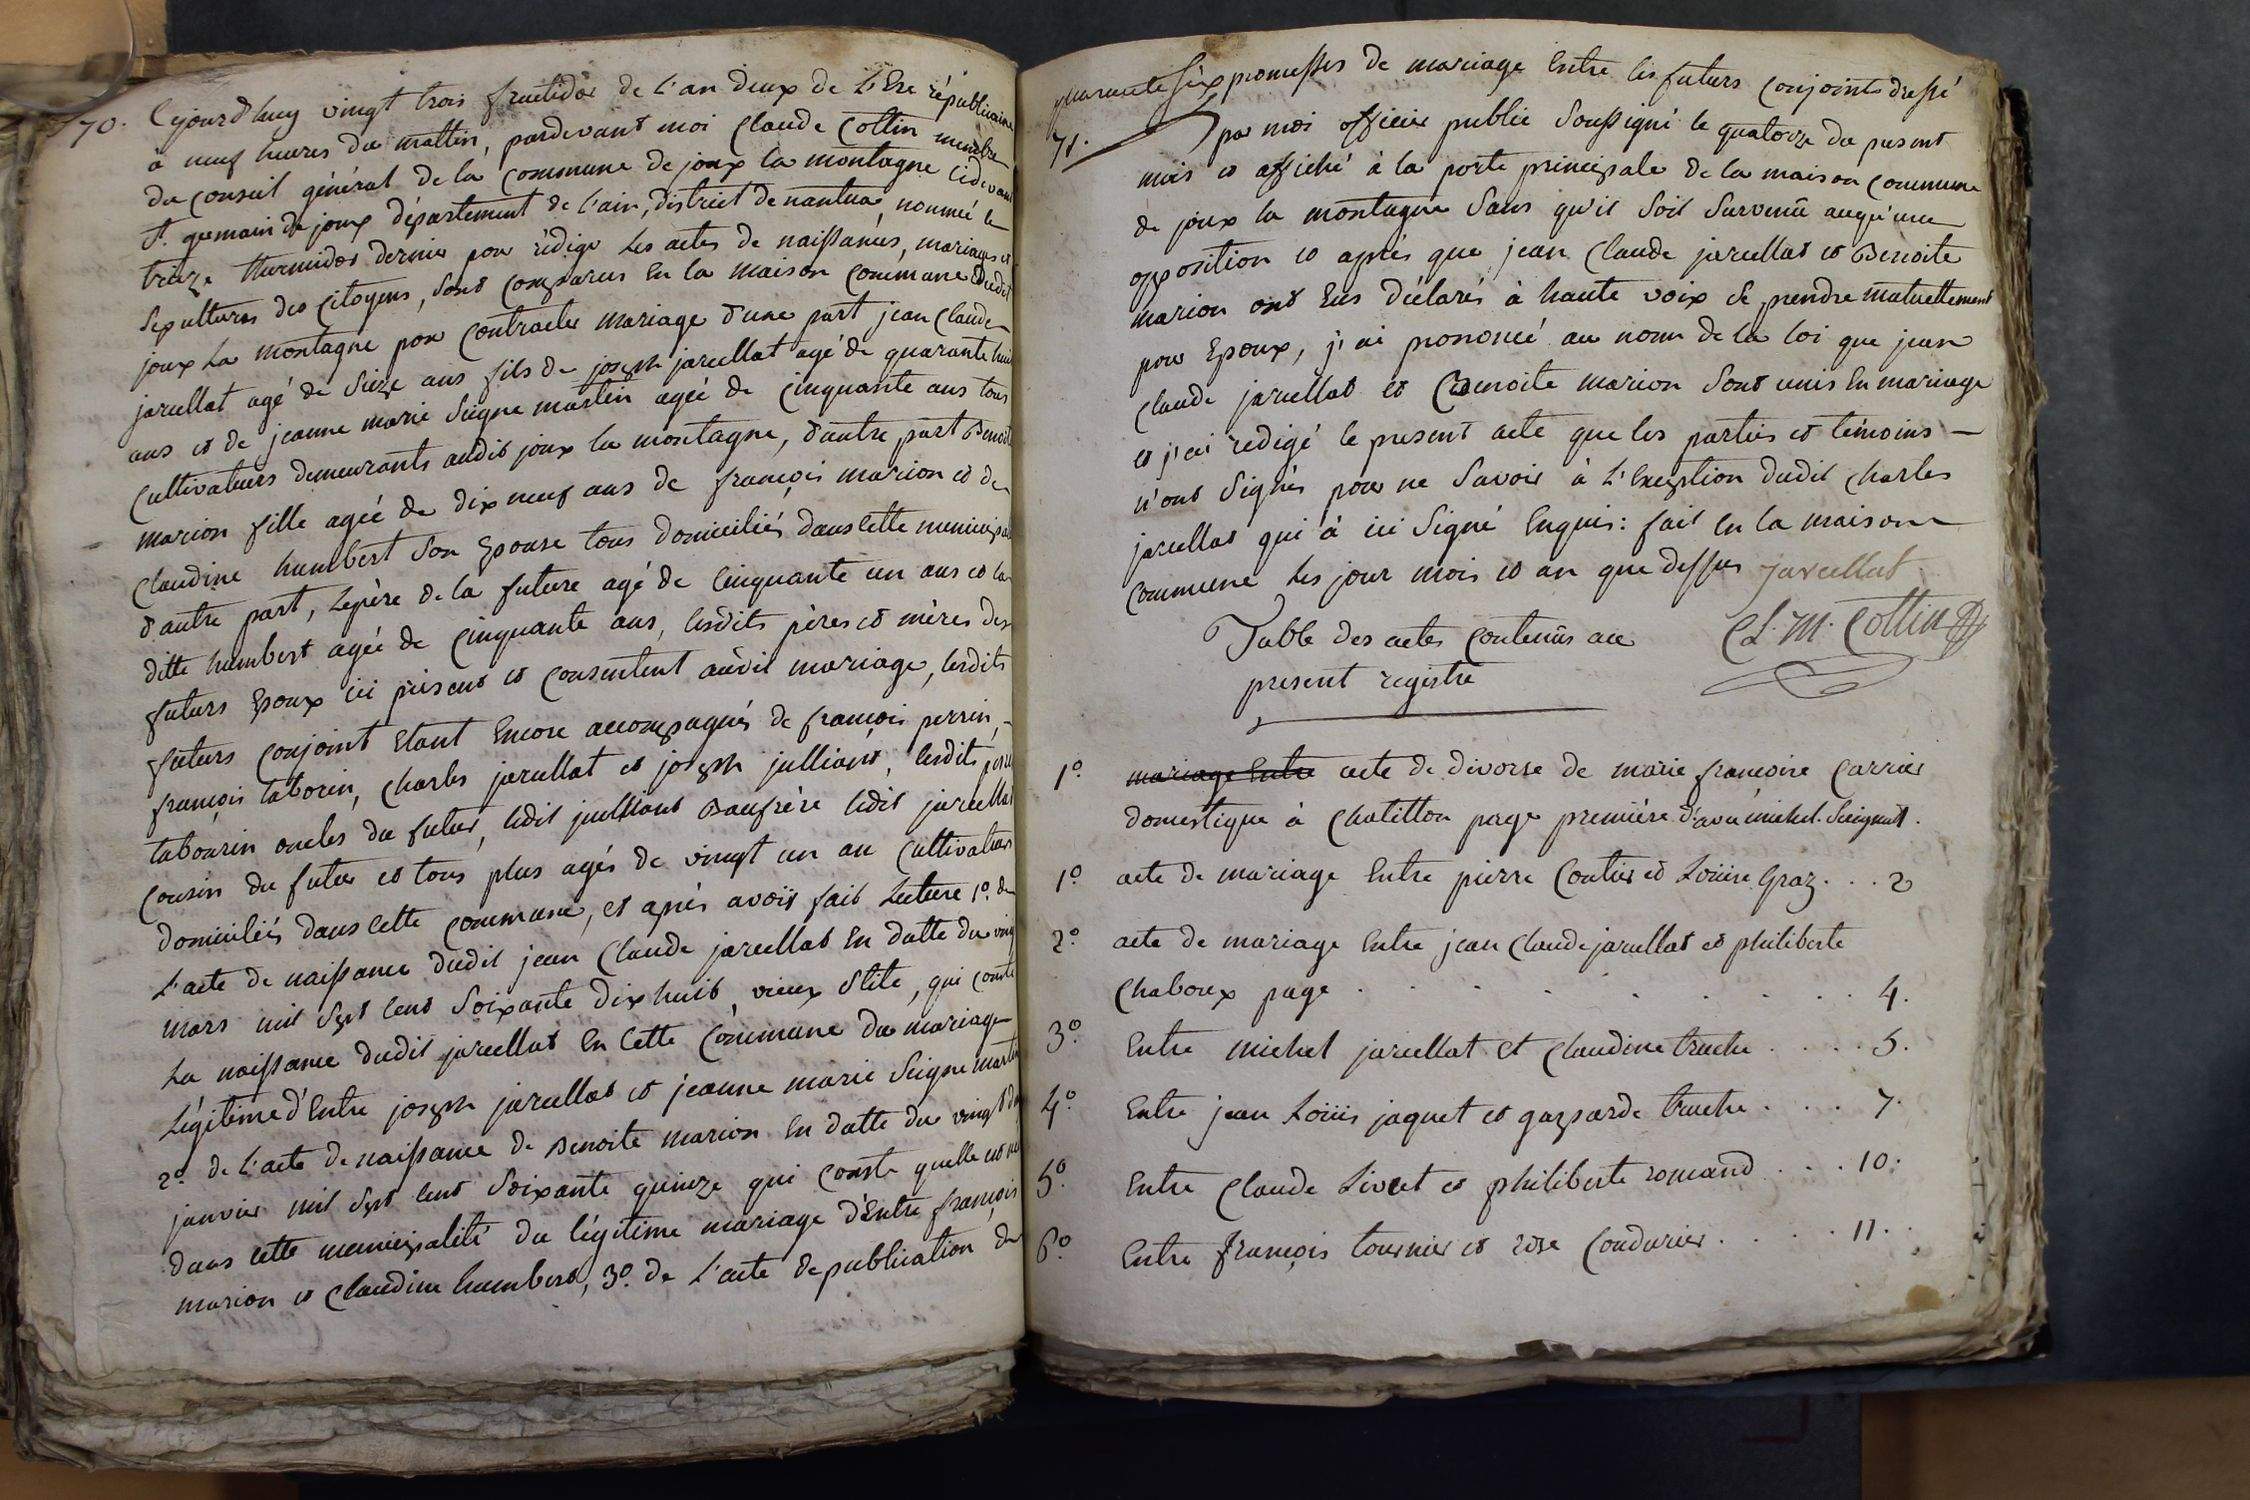 70. Cejourd'huy vingt trois fructidor de L'an deux de L'Ere républicaine
à neuf heures du mattin, pardevant moi Claude Cottin membre
du conseil général de la Commune de joux la montagne cidevant
st. germain de joux département de l'ain, district de nantua, nommé le
treize thermidor dernier pour rédiger les actes de naissances, mariages et
sepultures des citoyens, sont comparus En la maison commune dudit
joux la montagne pour contracter mariage d'une part jean Claude
jarcellat agé de seize ans fils de joseph jarcellat agé de quarante huit
ans et de jeanne marie seigne martin agée de cinquante ans tous
cultivateurs demeurants audit joux la montagne, d'autre part Benoite
marion fille agée de dix neuf ans de françois marion et de
Claudine humbert son Epouse tous domiciliés dans cette municipal
d'autre part, Lepère de la future agé de cinquante un ans et la
ditte humbert agée de cinquante ans, lesdits pères et mères des
futurs Epoux ici présent et consentent audit mariage, lesdits
futurs conjoint Etant Encore accompagnés de françois perrin,
françois taborin, Charles jarcellat et joseph julliant, lesdits perrin
tabourin oncles du futur, ledit julliant Baufrère ledit jarcellat
Cousin du futur et tous plus agés de vingt un an cultivateurs
domiciliés dans cette commune, et après avoir fait Lecture 1º. de
L'acte de naissance dudit jean Claude jarcellat En datte du vingt
mars mil sept cent soixante dix huit, vieux stile, qui conste
La naissance dudit jarcellat En cette Commune du mariage
Légitime d'Entre joseph jarcellat et jeanne marie seigne martin
2º. de L'acte de naissance de Benoite marion En datte du vingt
janvier mil sept cent soixante quinze qui conste quelle est née
dans cette municipalité du légitime mariage d'Entre françois
marion et Claudine humbert, 3º. de L'acte de publication de
quarante six promesses de mariage Entre les futurs conjoints dressé
71. par moi officier public soussigné le quatorze du present
mois et affiché à la porte principale de la maison commune
de joux la montagne sans qu'il soit survenu auqu'une
opposition et après que jean Claude jarcellat et Benoite
marion ont Eus déclarés à haute voix se prendre mutuellement
pour Epoux, j'ai prononcé au nom de la loi que jean
Claude jarcellat et Benoite marion sont unis En mariage
et j'ai redigé le present acte que les parties et témoins
n'ont signés pour ne savoir à L'Exeption dudit Charles
jarcellat qui à ici signé Enquis: fait En la maison
commune les jour mois et an que dessus Jarcellat
Cl. M. Cottin
Table des actes contenus au
present registre
1º. mariage Entre acte de divorse de marie françoise Carrier
domestique à Chatillon page première d'avec michel
1º. acte de mariage Entre pierre Coutier et Louise Graz . . . 2
2º. acte de mariage Entre jean Claude jarcellat et philiberte
Chaboux page . . . . . . . . . 4.
3º. Entre michel jarcellat et Claudine truche . . . . 5.
4º. Entre jean Louis jaquet et gasparde truche . . . . 7.
5º. Entre Claude Livet et philiberte romand . . . . 10.
6º. Entre françois tournier et rose Condurier . . . . 11.